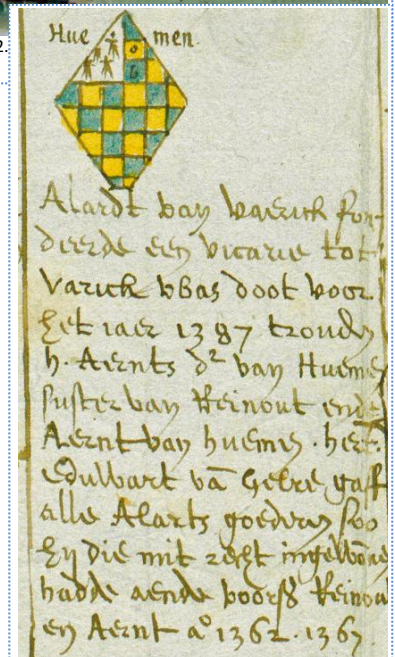 Hue men.
o
b
Alardt van Varick fon-
deerde een vicarie tot
Varick was doot voor.
het iaer 1387 troudẽ
h. Aernts dr van Huemẽ
suster van Reinout ende
Aernt van huemẽ. hert.
Eduwart vā Gelre gaff
alle Alarts goederẽ soo
hij die mit recht ingewōnẽ
hadde aende voors Reinou
en Aernt ao 1362. 1367